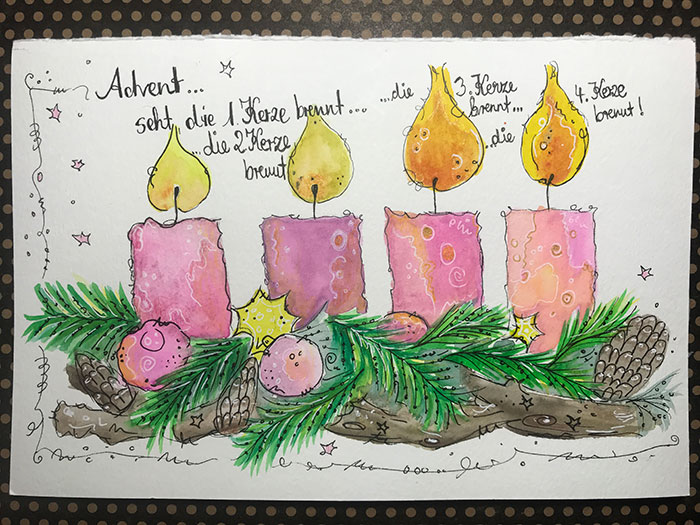 Advent...
seht, die 1. Kerze brennt...
...die 2 Kerze
brennt
...die 3. Kerze
brennt...
...die 4. Kerze
brennt!